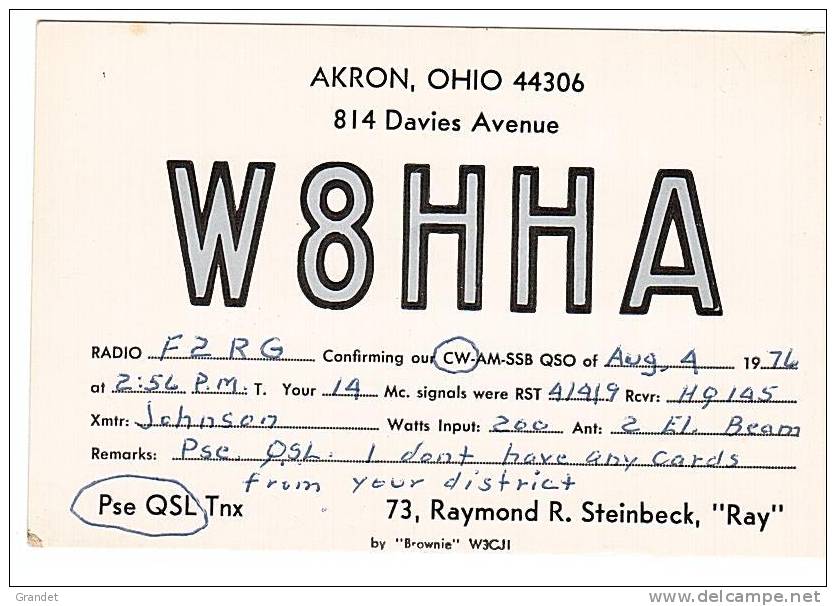 AKRON, OHIO 44306
814 Davies Avenue
W8HHA
RADIO F2RG Confirming our CW-AM-SSB QSO of Aug, 4 1976
at 2:56 P.M. T. Your 14 Mc. signals were RST 449 Rcvr: HQ145
Xmtr: Johnson Watts Input: 200 Ant: 2 El. Beam
Remarks: Pse. QSL. I dont have any cards
from your district
Pse QSL Tnx 73, Raymond R. Steinbeck, "Ray"
by "Brownie" W3CJI
Grandet
delcampe.net